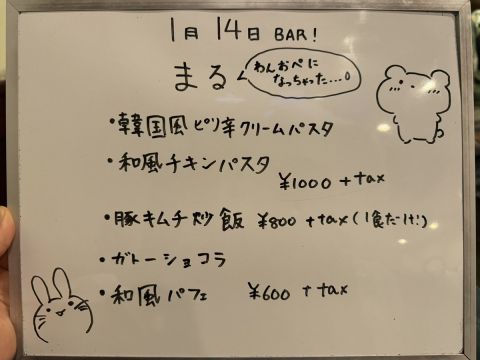 1月14日 BAR!
まる
わんおぺに
なっちゃった...。
・韓国風ピリ辛クリームパスタ
・和風チキンパスタ
¥1000 + tax
・豚キムチ炒飯 ¥800 + tax (1食だけ!)
・ガトーショコラ
・和風パフェ ¥600 + tax